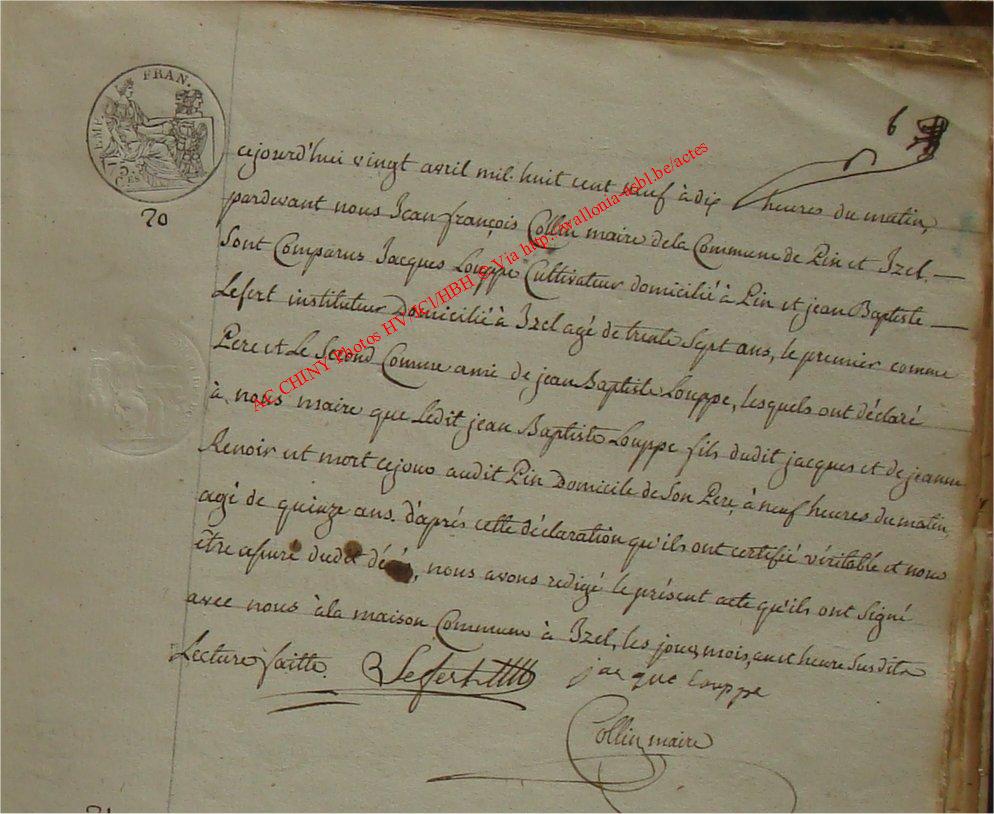 FRAN.
EME.
75 C.ES
20
6
cejourd'hui vingt avril mil huit cent neuf à dix heures du matin,
pardevant nous Jean françois Collin maire dela Commune de Pin et Izel. —
Sont Comparus Jacques Louppe Cultivateur domicilié à Pin et jean Baptiste —
Lefert instituteur domicilié à Izel agé de trente Sept ans, le premier comme
Pere et Le Second Comme ami de jean Baptiste Louppe, lesquels ont déclaré
à nous maire que Ledit jean Baptiste Louppe fils dudit jacques et de jeanne
Renoir est mort cejour audit Pin Domicile de Son Pere, à neuf heures du matin,
agé de quinze ans. d'aprés cette déclaration qu'ils ont certifié véritable et nous
être assuré dudit décés, nous avons redigé le présent acte qu'ils ont Signé
avec nous à la maison Commune à Izel, les jour, mois, an et heure Susdits
Lecture faitte. Lefert jacque louppe
Collin maire
AC CHINY Photos HV/JCl/HBH © Via http://wallonia-asbl.be/actes